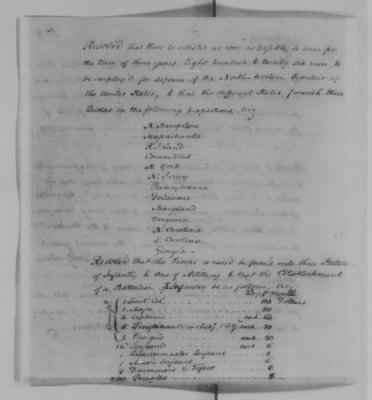 Resolved that there be enlisted as soon as possible to serve for
the term of three years, Eight hundred & twenty six men, to
be employ'd for defence of the North Western Frontier of
the United States, & that the different States furnish their
Quotas in the following proportions, viz
N. Hampshire
Massachusetts
R. Island
Connecticut
N. York
N. Jersey
Pennsylvania
Delaware
Maryland
Virginia
N. Carolina
S. Carolina
Georgia
Resolved that the Troops so raised be form'd into three
of Infantry & One of Artillery & that the Establishment
of a Battalion of Infantry be as follows, viz
Pay p month
1 Lieut. Col. 100 Dollars
1 Major
4 Captains each
5 Lieutenants each 30
4 Ensigns each 20
16 Serjeants each 6
1 Quartermaster Serjeant
1 Serjeant 6
2 Drummers & Fifers
Privates